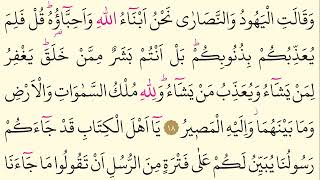 وَقَالَتِ الْيَهُودُ وَالنَّصَارٰى نَحْنُ اَبْنَٓاءُ اللّٰهِ وَاَحِبَّٓاؤُ۬هُۜ قُلْ فَلِمَ
يُعَذِّبُكُمْ بِذُنُوبِكُمْۜ بَلْ اَنْتُمْ بَشَرٌ مِمَّنْ خَلَقَۜ يَغْفِرُ
لِمَنْ يَشَٓاءُ وَيُعَذِّبُ مَنْ يَشَٓاءُۜ وَلِلّٰهِ مُلْكُ السَّمٰوَاتِ وَالْاَرْضِ
وَمَا بَيْنَهُمَاۘ وَاِلَيْهِ الْمَص۪يرُ ﴿١٨﴾ يَٓا اَهْلَ الْكِتَابِ قَدْ جَٓاءَكُمْ
رَسُولُنَا يُبَيِّنُ لَكُمْ عَلٰى فَتْرَةٍ مِنَ الرُّسُلِ اَنْ تَقُولُوا مَا جَٓاءَنَا